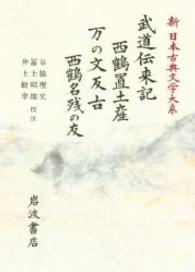 新 日本古典文学大系
武道伝来記
西鶴置土産
万の文反古
西鶴名残の友
谷脇理史
冨士昭雄 校注
井上敏幸
岩波書店